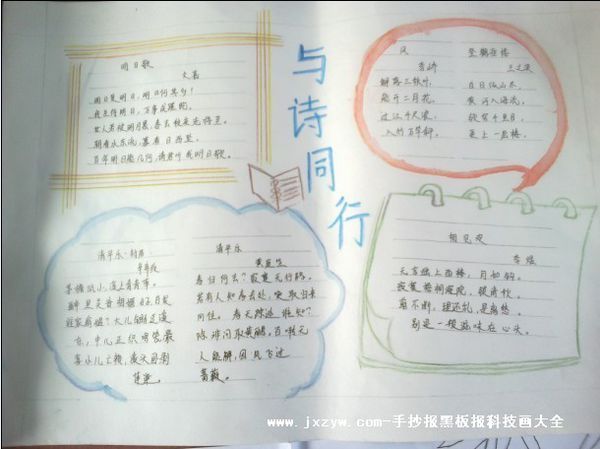 与诗同行
明日歌
文嘉
明日复明日,明日何其多!
我生待明日,万事成蹉跎。
世人若被明日累,春去秋来老将至。
朝看水东流,暮看日西坠。
百年明日能几何,请君听我明日歌。
风
李峤
解落三秋叶,
能开二月花。
过江千尺浪,
入竹万竿斜。
登鹳雀楼
王之涣
白日依山尽,
黄河入海流。
欲穷千里目,
更上一层楼。
清平乐·村居
辛弃疾
茅檐低小,溪上青青草。
醉里吴音相媚好,白发
谁家翁媪?大儿锄豆溪
东,中儿正织鸡笼。最
喜小儿亡赖,溪头卧剥
莲蓬。
清平乐
黄庭坚
春归何去?寂寞无行路。
若有人知春去处,唤取归来
同住。春无踪迹谁知?
除非问取黄鹂。百啭无
人能解,因风飞过
蔷薇。
相见欢
李煜
无言独上西楼,月如钩。
寂寞梧桐深院,锁清秋。
剪不断,理还乱,是离愁。
别是一般滋味在心头。
www.jxzyw.com-手抄报黑板报科技画大全